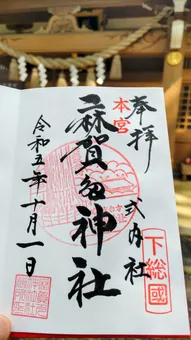 奉拝
本宮
式内社
下総國
麻賀多神社
令和五年十月一日